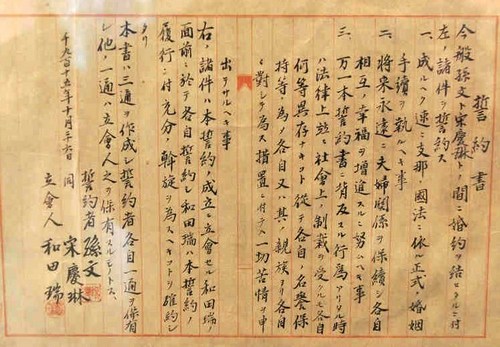 誓約書
今般孫文ト宋慶琳トノ間ニ婚約ヲ結セタルニ付
左ノ諸件ヲ誓約ス
一、成ルヘク速ニ支那ノ國法ニ依ル正式ノ婚姻
手續ヲ執ルヘキ事
二、將来永遠ニ夫婦関係ヲ保續シ各自
相互ノ幸福ヲ增進スルニ努ムヘキ事
三、万一本誓約書ニ背反スル行為アリタル時
ハ法律上並ニ社會上ノ制裁ヲ受クルモ各自
何等異存ナキコト従テ各自ノ名譽保
持等ノ為メ各自又ハ其ノ親族ヨリ各自
ニ對シテ為ス措置ニ付テハ一切苦情ヲ申
出テサルヘキ事
右ノ諸件ハ本誓約ノ成立ニ立會セル和田瑞ノ
面前ニ於テ各自誓約シ和田瑞ハ本誓約ノ
履行ニ付充分ノ斡旋ヲ為スヘキコトヲ確約シ
タリ
本書ハ三通ヲ作成シ誓約者各自一通ヲ保有
シ他ノ一通ハ立會人之ヲ保有スルモノトス
誓約者 孫文
同 宋慶琳
立會人 和田瑞
千九百十五年十月二十六日